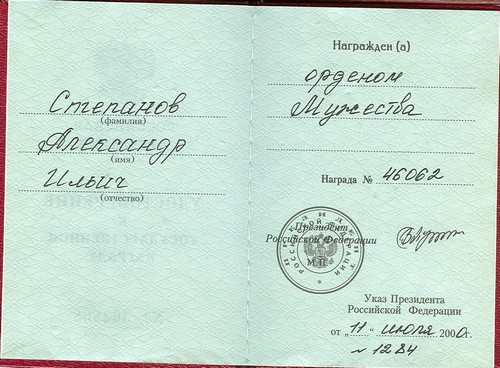 Степанов
(фамилия)
Александр
(имя)
Ильич
(отчество)
Награжден (а)
орденом
Мужества
Награда № 46062
Президент
Российской Федерации
М.П.
Указ Президента
Российской Федерации
от „11“ июля 2000г.
№ 1284